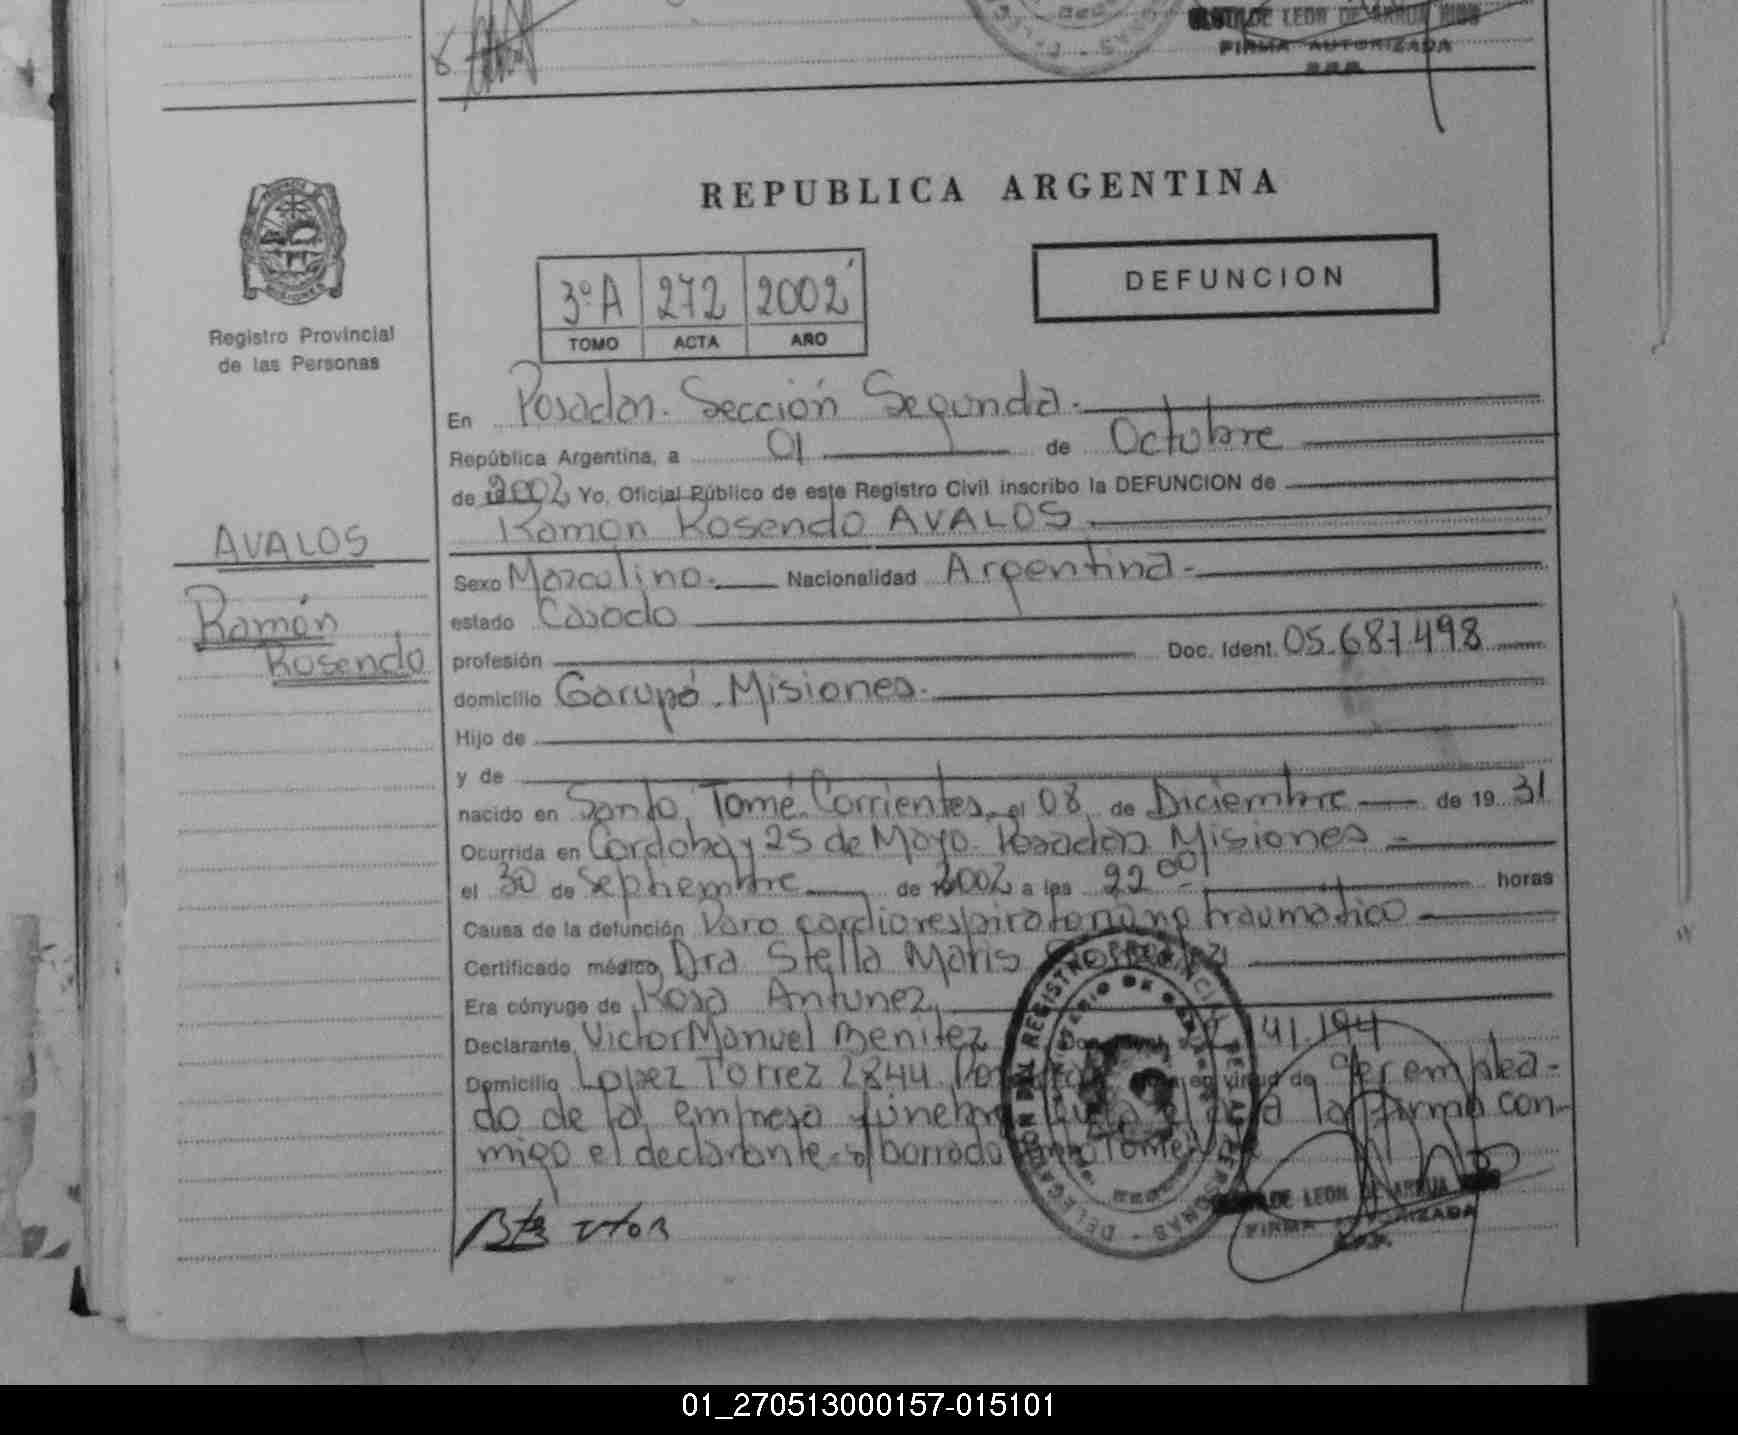 CLOTILDE LEON DE ARRUA
FIRMA AUTORIZADA
REPUBLICA ARGENTINA
3ºA 272 2002
TOMO ACTA AÑO
DEFUNCION
MISIONES
Registro Provincial
de las Personas
En Posadas. Sección Segunda.
República Argentina, a 01 de Octubre
de 2002 Yo, Oficial Público de este Registro Civil inscribo la DEFUNCION de
Ramon Rosendo AVALOS
AVALOS
Ramón
Rosendo
Sexo Masculino. Nacionalidad Argentina.
estado Casado
profesión Doc. Ident. 05.687.498
domicilio Garupá. Misiones.
Hijo de
y de
nacido en Santo Tomé. Corrientes, el 08 de Diciembre de 19 31
Ocurrida en Cordoba y 25 de Mayo. Posadas Misiones
el 30 de Septiembre de 2002 a las 22 00 horas
Causa de la defunción Paro cardiorespiratorio no traumatico
Certificado médico Dra Stella Maris
Era cónyuge de Rosa Antunez
Declarante Victor Manuel Benitez 41.194
Domicilio Lopez Torrez 2844 en virtud de ser emplea-
do de la empresa fúnebre la firma con-
migo el declarante. s/ borrado Tomé
CLOTILDE LEON DE ARRUA
FIRMA AUTORIZADA
01_270513000157-015101